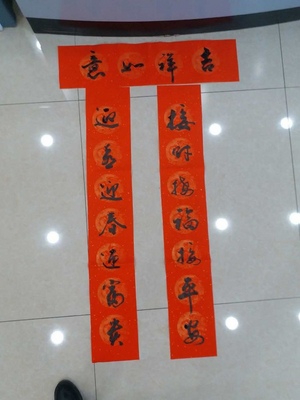 吉祥如意
接财接福接平安
迎喜迎春迎富贵